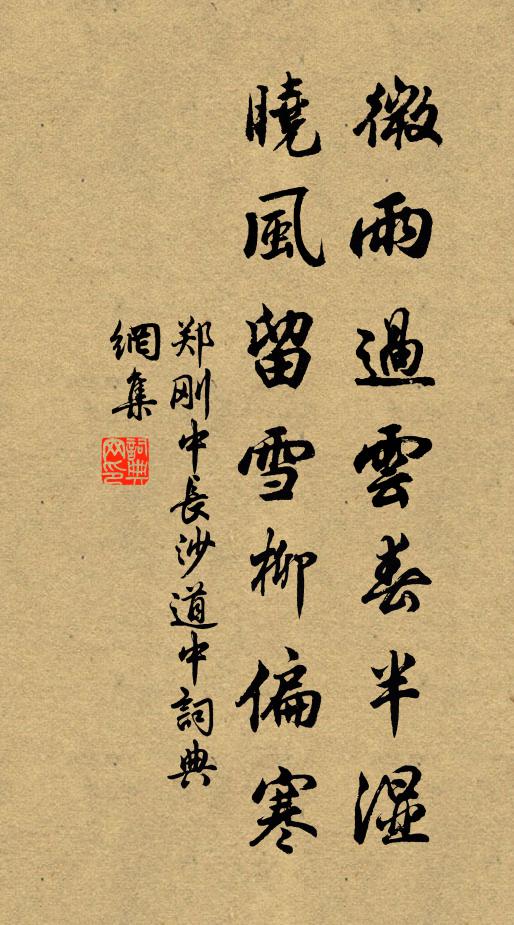 微雨過雲春半濕
曉風留雪柳偏寒
郑刚中長沙道中詞典
網集
詞典
网印